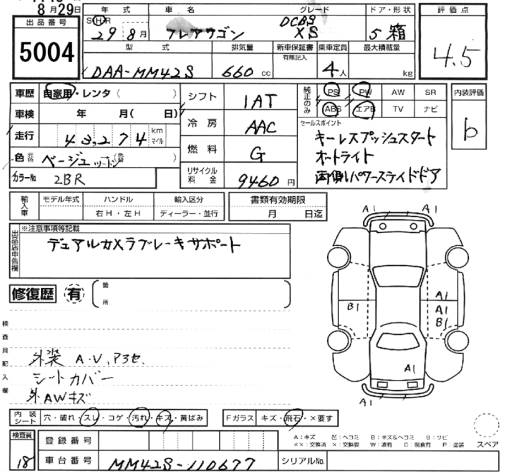 8月29日
出品番号 5004
年式 車名 グレード ドア・形状
29年8月 フレアワゴン DCBS XS 5 箱
型式 排気量 新車保証書 有無記入 乗車定員 最大積載量
DAA-MM42S 660cc 4人 kg
評価点
4.5
車歴 自家用・レンタ( )
車検 年 月( 日)
走行 43,274 km マイル
色
カラーNo. ZBR
シフト 1AT
冷房 AAC
燃料 G
リサイクル料金 9460円
純正のみ PS PW AW SR
ABS エアB TV ナビ
セールスポイント
キーレスプッシュスタート
オートライト
両側パワースライドドア
内装評価
b
輸入車 モデル年式 ハンドル 輸入区分
右H・左H ディーラー・並行
書類有効期限
月 日迄
※注意事項等記載
デュアルカメラブレーキサポート
修復歴 有 箇所
検査員記入欄
外装 A・U、アヲセ
シートカバー
外AWキズ
A1 A1
B1 A1
A1
B1
A1
A1
内装シート 穴・破れ・スレ・コゲ・汚れ・キズ・黄ばみ
Fガラス キズ・飛石・×要す
スペア
検査員 18
登録番号
車台番号 MM42S-110677 シリアルNo.